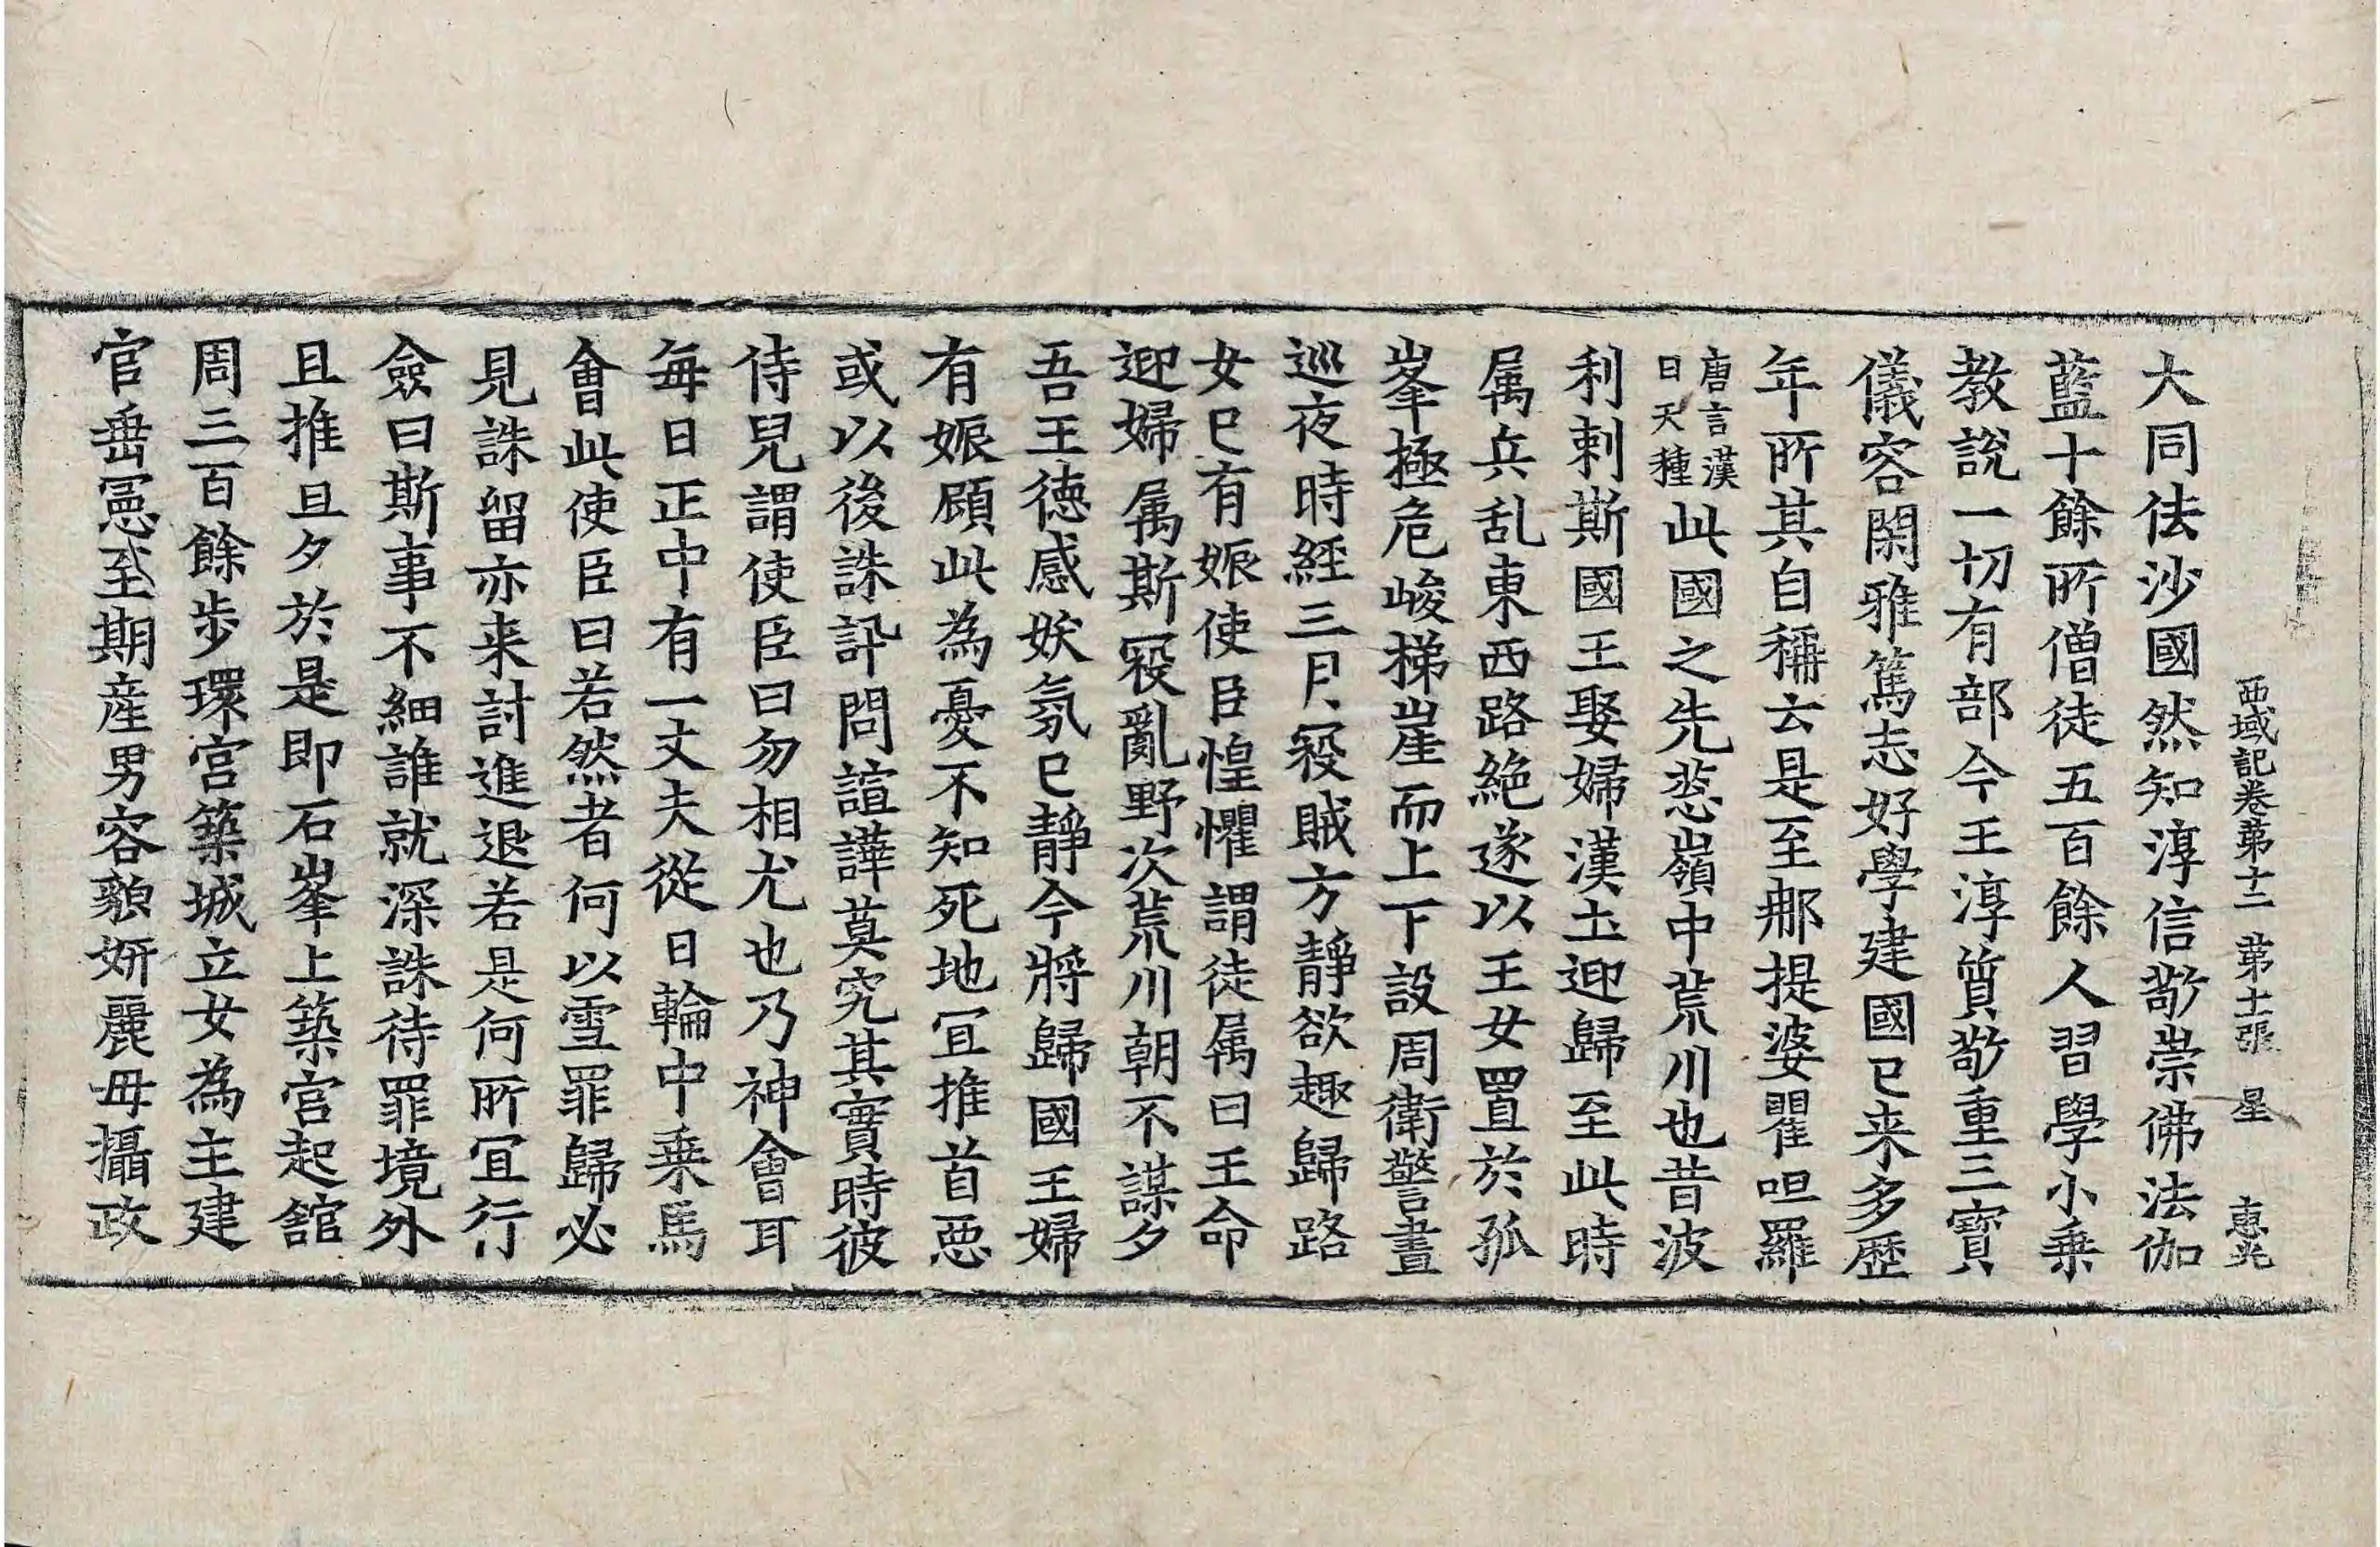 西域記卷第十二 第十張 星 惠光
大同佉沙國然知淳信敬崇佛法伽
藍十餘所僧徒五百餘人習學小乗
教說一切有部今王淳質敬重三寶
儀容閑雅篤志好學建國已来多歷
年所其自稱云是至那提婆瞿呾羅
唐言漢
日天種
此國之先葱嶺中荒川也昔波
利剌斯國王娶婦漢土迎歸至此時
属兵乱東西路絶遂以王女置於孤
峯極危峻梯崖而上下設周衛警晝
巡夜時經三月㓂賊方靜欲趣歸路
女已有娠使臣惶懼謂徒属曰王命
迎婦属斯㓂亂野次荒川朝不謀夕
吾王徳感妖氛已靜今將歸國王婦
有娠顧此為憂不知死地冝推首悪
或以後誅訊問諠譁莫究其實時彼
侍兒謂使臣曰勿相尤也乃神會耳
每日正中有一丈夫從日輪中乗馬
會此使臣曰若然者何以雪罪歸必
見誅留亦来討進退若是何所冝行
僉曰斯事不細誰就深誅待罪境外
且推旦夕於是即石峯上築宮起舘
周三百餘步環宮築城立女為主建
官垂憲至期産男容貌妍麗母攝政